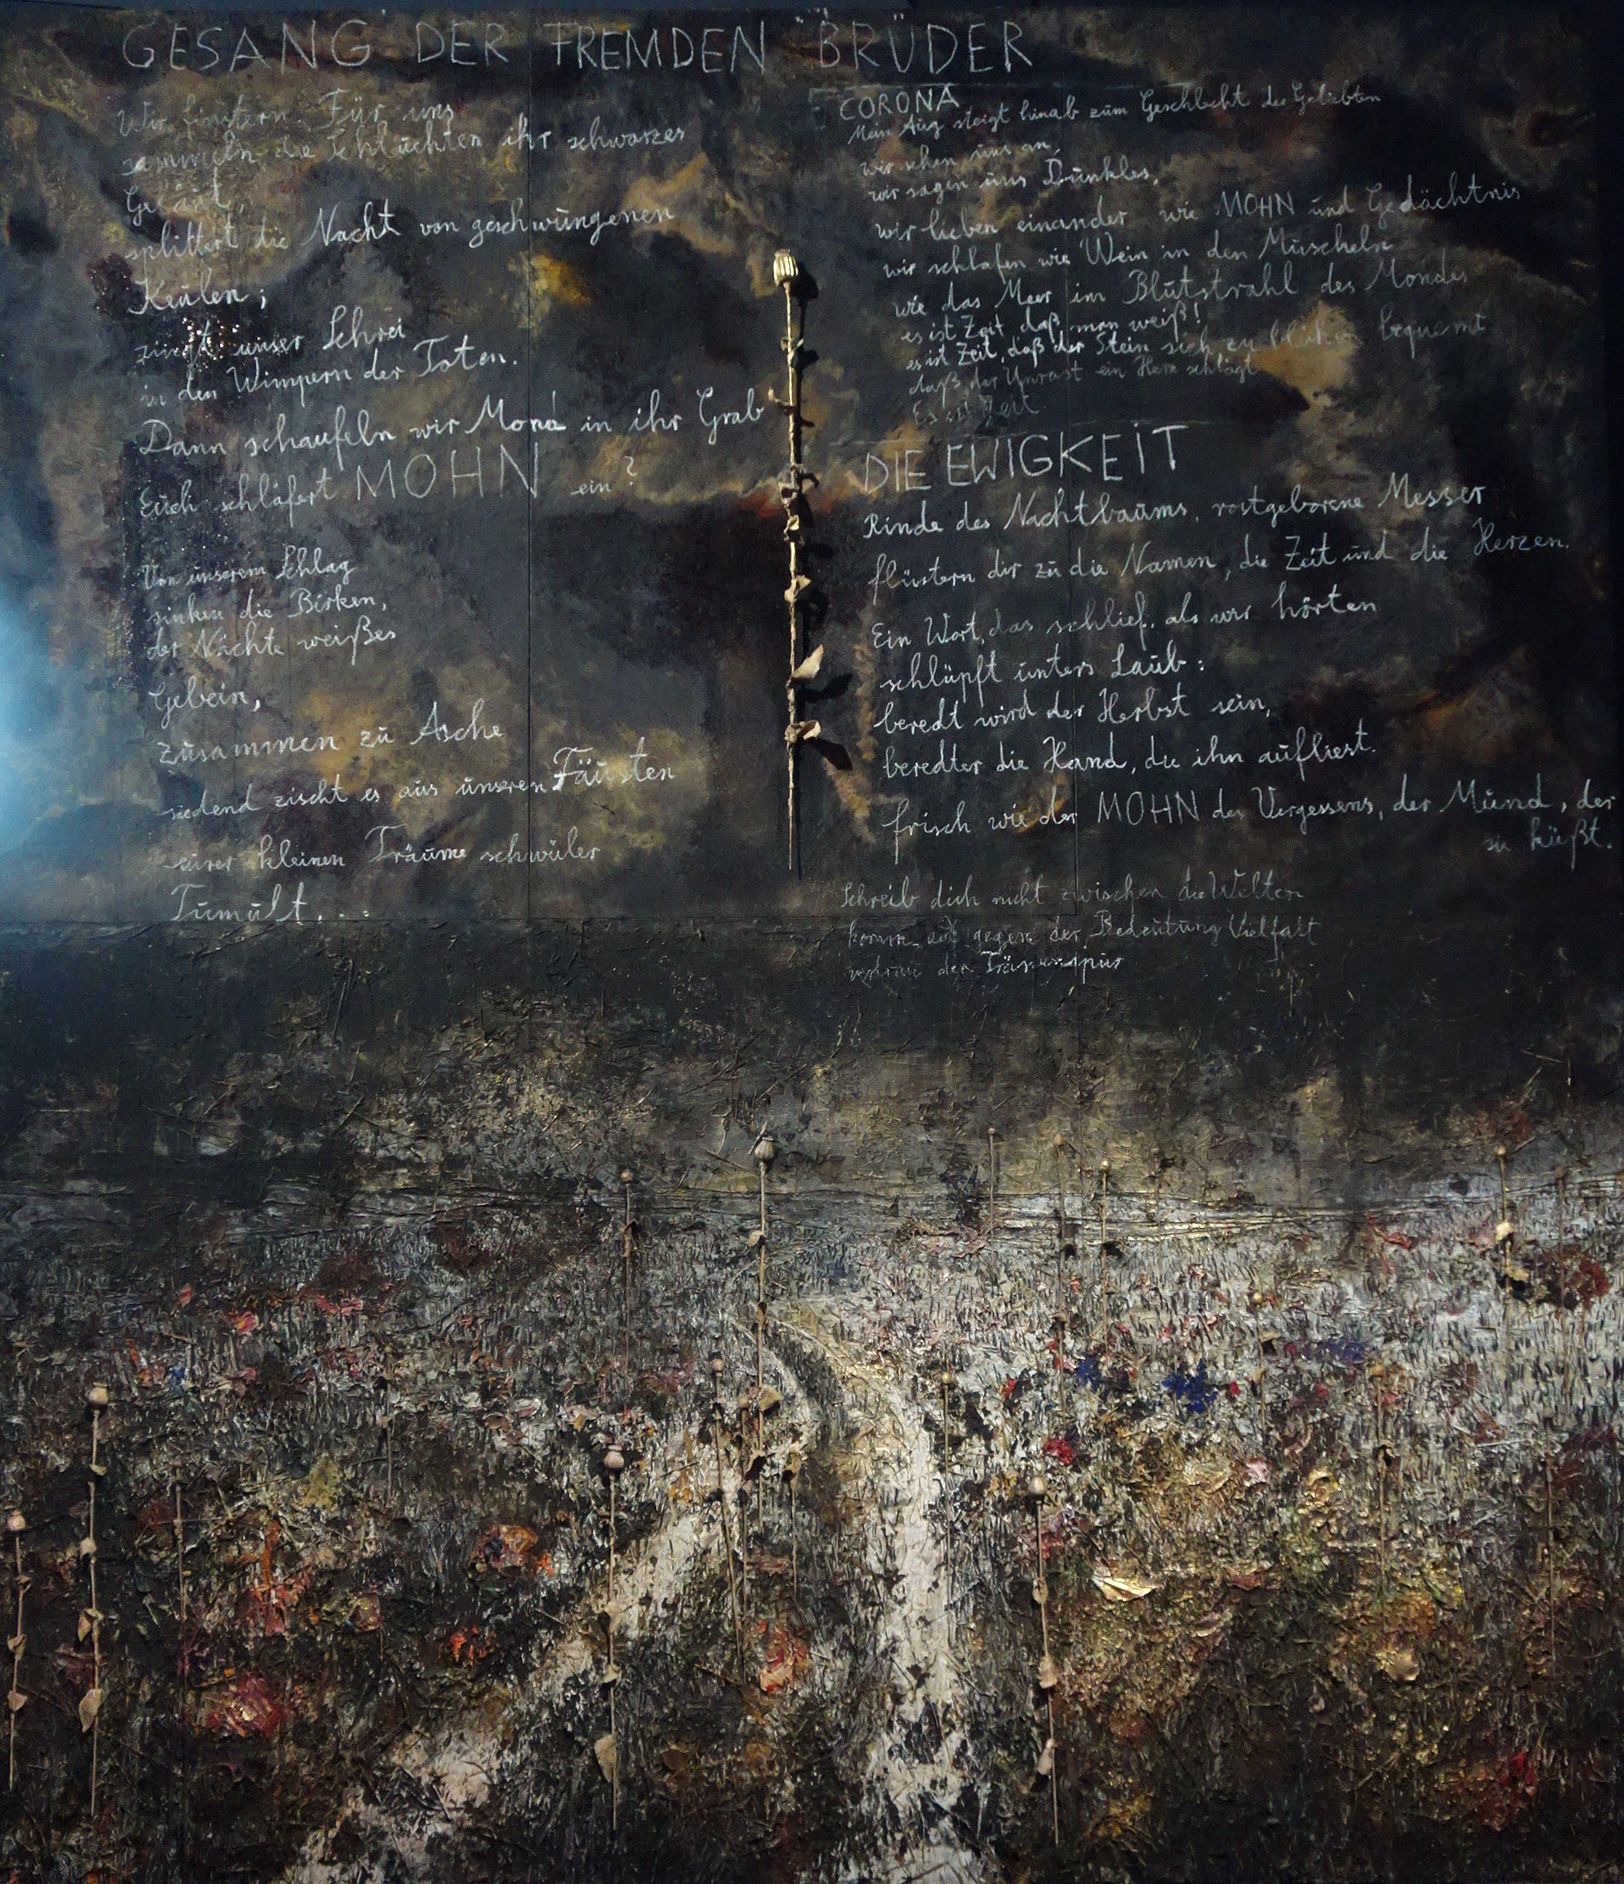 GESANG DER FREMDEN BRÜDER
Wir finstern. Für uns
sammeln die Schluchten ihr schwarzes
Geläut,
splittert die Nacht von geschwungenen
Keulen;
zwingt unser Schrei
in den Wimpern der Toten.
Dann schaufeln wir Mond in ihr Grab
Euch schläfert MOHN ein?
Von unserem Schlag
sinken die Birken,
der Nächte weißes
Gebein,
zusammen zu Asche
siedend zischt es aus unseren Fäusten
eurer kleinen Träume schwüler
Tumult...
CORONA
Mein Aug steigt hinab zum Geschlecht der Geliebten
wir sehen uns an,
wir sagen uns Dunkles,
wir lieben einander wie MOHN und Gedächtnis
wir schlafen wie Wein in den Muscheln
wie das Meer im Blutstrahl des Mondes
es ist Zeit, daß man weiß!
es ist Zeit, daß der Stein sich zu blühen bequemt
daß der Unrast ein Herz schlägt
Es ist Zeit
DIE EWIGKEIT
Rinde des Nachtbaums, rostgeborene Messer
flüstern dir zu die Namen, die Zeit und die Herzen.
Ein Wort, das schlief, als wir hörten
schlüpft unters Laub:
beredt wird der Herbst sein,
beredter die Hand, die ihn aufliest.
frisch wie der MOHN des Vergessens, der Mund, der
sie küßt.
Schreib dich nicht zwischen die Welten
komm auf gegen der Bedeutung Vielfalt
vertrau der Tränenspur